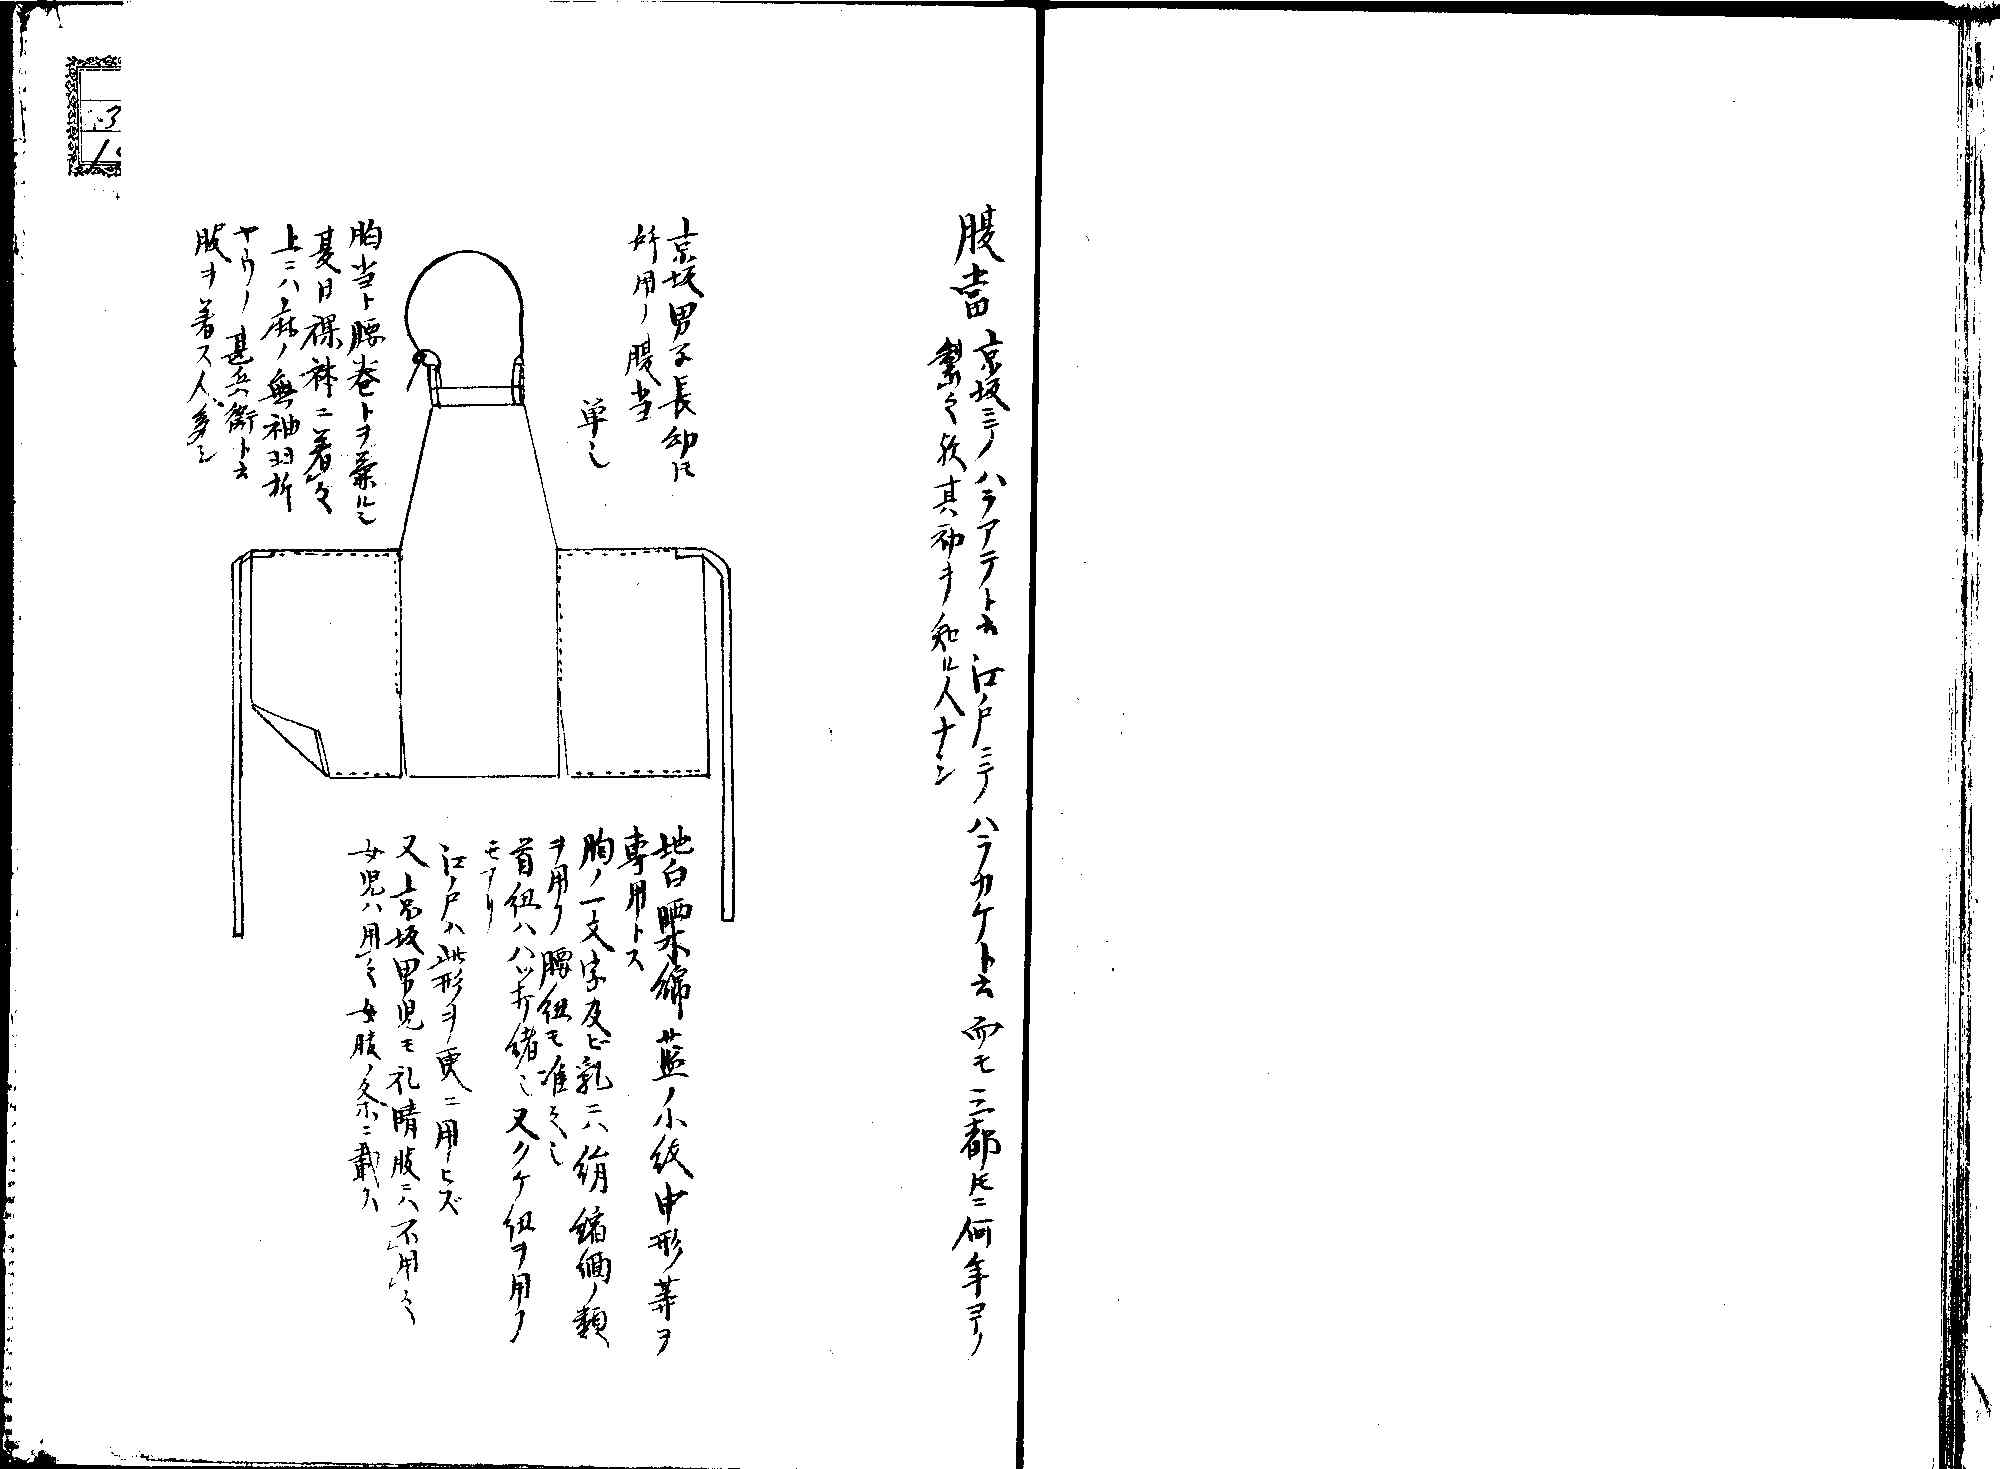 腹當 京坂ニテハラアテト云 江戸ニテハラカケト云 而モ三都トモニ何年ヨリ
製之欤其初ヲ知ル人ナシ
京坂男子長幼トモ
所用ノ腹当
単也
地白晒木綿藍ノ小紋中形等ヲ
専用トス
胸ノ一文字及ビ乳ニハ絹縮緬ノ類
ヲ用フ 腰紐モ准之也
首紐ハ八ツ打緒也又クケ紐ヲ用フ
モアリ
江戸ハ此形ヲ更ニ用ヒズ
又京坂男児モ礼晴服ニハ不用之
女児ハ用之 女服ノ条ニ載ク
胸当ト腰巻トヲ兼ル也
夏日裸体ニ着之
上ニハ麻ノ無袖羽折
ヤウノ甚兵衛ト云
服ヲ着ス人多シ